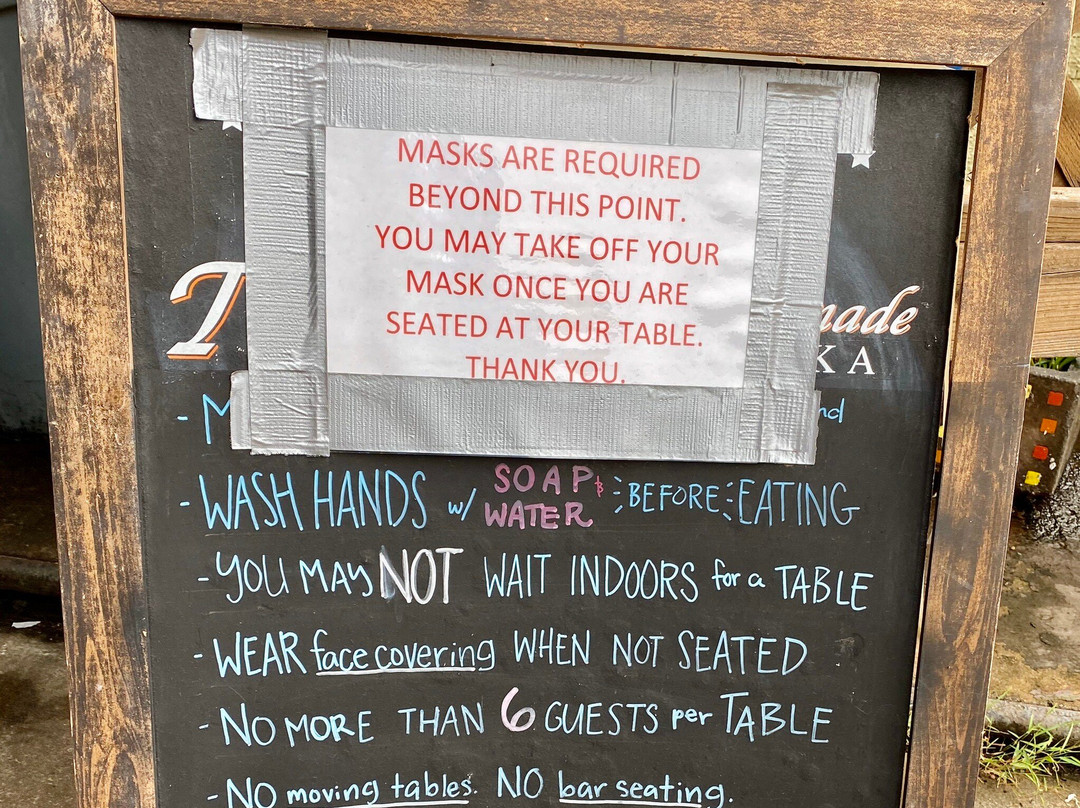 MASKS ARE REQUIRED
BEYOND THIS POINT.
YOU MAY TAKE OFF YOUR
MASK ONCE YOU ARE
SEATED AT YOUR TABLE.
THANK YOU.
- WASH HANDS w/ SOAP & WATER BEFORE EATING
- YOU MAY NOT WAIT INDOORS for a TABLE
- WEAR face covering WHEN NOT SEATED
- NO MORE THAN 6 GUESTS per TABLE
- NO moving tables. NO bar seating.